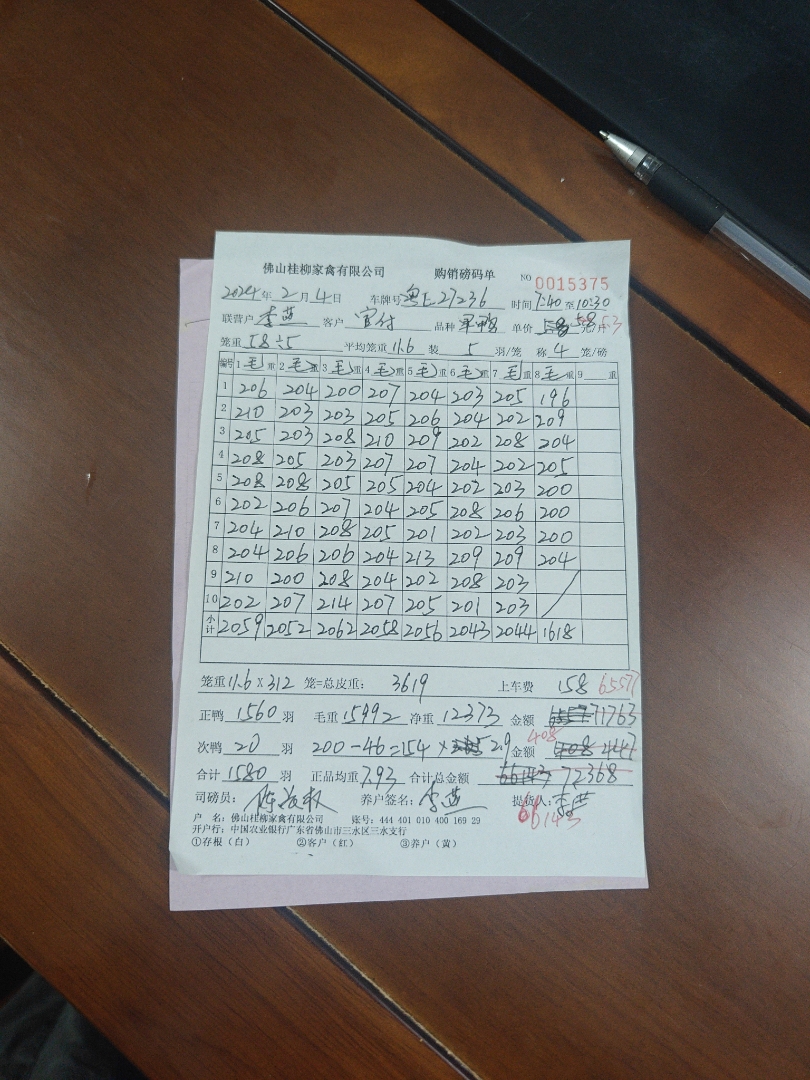 佛山桂柳家禽有限公司 购销磅码单 NO 0015375
2024年2月4日 车牌号 粤E27236 时间7:40至10:30
联营户 李燕 客户 官付 品种 单价 5.8 元/斤 5.3
笼重 58÷5 平均笼重 11.6 装 5 羽/笼 称 4 笼/磅
编号 1 毛 重 2 毛 重 3 毛 重 4 毛 重 5 毛 重 6 毛 重 7 毛 重 8 毛 重 9 重
1 206 204 200 207 204 203 205 196
2 210 203 203 205 206 204 202 209
3 205 203 208 210 209 202 208 204
4 208 205 203 207 207 204 202 205
5 208 208 205 205 204 202 203 200
6 202 206 207 204 205 208 206 200
7 204 210 208 205 201 202 203 200
8 204 206 206 204 213 209 209 204
9 210 200 208 204 202 208 203
10 202 207 214 207 205 201 203
小计 2059 2052 2062 2058 2056 2043 2044 1618
笼重 11.6 X 312 笼=总皮重: 3619 上车费 158 65577
正鸭 1560 羽 毛重 15992 净重 12373 金额 71763
次鸭 20 羽 200-46=154 × 2.9 408 金额 447
合计 1580 羽 正品均重 7.93 合计总金额 66143 72368
司磅员: 养户签名: 李燕 提货人: 李燕
66143
户 名: 佛山桂柳家禽有限公司 账号: 444 401 010 400 169 29
开户行: 中国农业银行广东省佛山市三水区三水支行
①存根（白） ②客户（红） ③养户（黄）